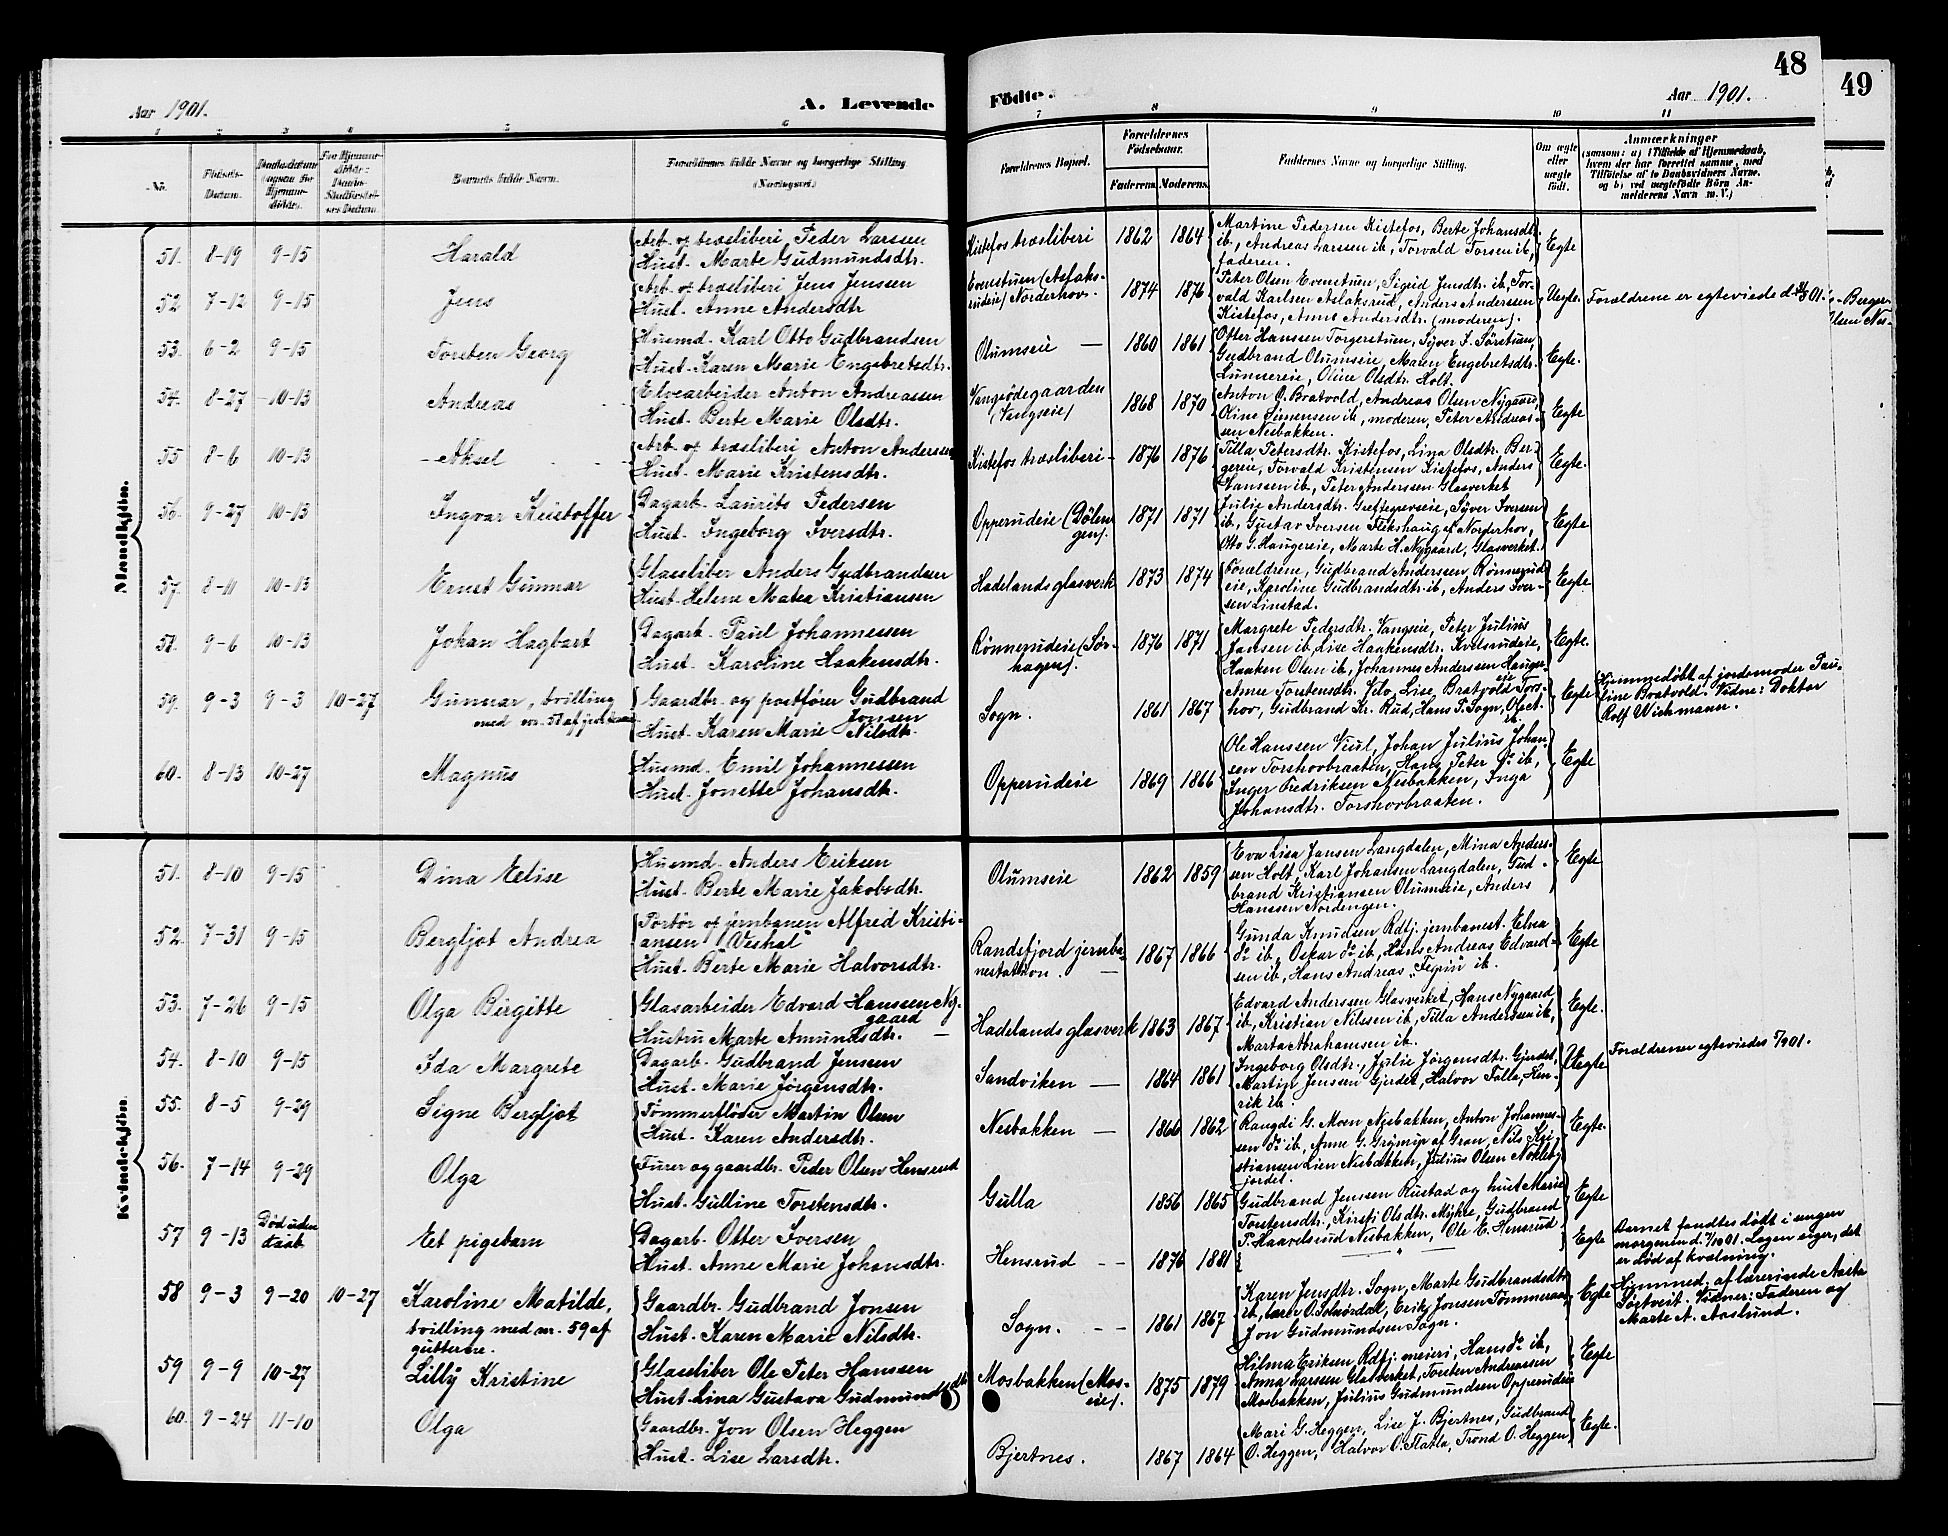 48
49
Aar 1901.
A. Levende
Fødte.
Aar 1901.
1 2 3 4 5 6 7 8 9 10 11
No.
Fødsels-Datum.
Barnets fulde Navn.
Forældrenes fulde Navne og borgerlige Stilling
(Næringsvei.)
Forældrenes Bopæl.
Forældrenes Fødselsaar.
Faderens. Moderens.
Faddernes Navne og borgerlige Stilling.
Om ægte eller uægte født.
Anmærkninger
(saasom: a) i Tilfælde af Hjemmedaab,
hvem der har forrettet samme, med
Tilføielse af to Daabsvidners Navne,
og b) ved uægtefødte Børn An-
melderens Navn m. V.)
Mandkjøn.
51. 8-19 9-15 Harald
Arb. v/ træsliberi Peder Larssen
Hust. Marte Gudmundsdtr.
Kistefos træsliberi 1862 1864
Martine Pedersen Kistefos, Berte Johansdtr.
ib., Andreas Larssen ib., Torvald Torsen ib.,
faderen.
Egte
52 7-12 9-15 Jens
Arb. v/ træsliberi Jens Jenssen
Hust. Anne Andersdtr
Evenstuen (Aslaks-
rudeie) Norderhov. 1874 1876
Peter Olsen Evenstuen, Sigrid Jensdtr. ib., Tor-
vald Karlsen Aslaksrud, Anders Anderssen
Kistefos, Anne Andersdtr. (moderen).
Uegte.
Forældrene er egteviede d.
53. 6-2 9-15 Torsten Georg
Husmd. Karl Otto Gudbrandsen
Hust. Karen Marie Engebretsdtr.
Olumseie — 1860 1861
Otter Hanssen Torgerstuen, Syver J. Sørstuen,
Gudbrand Olumseie, Maren Engebretsdtr.
Lunnereie, Oline Olsdtr. Holt.
Egte.
54. 8-27 10-13 Andreas
Elvearbeider Anton Andreassen
Hust. Berte Marie Olsdtr.
Vangsødegaarden
(Vangseie) 1868 1870
Anton O. Bratvold, Andreas Olsen Nygaard,
Oline Simensen ib., moderen, Peter Andreas-
sen Nesbakken.
Egte
55 8-6 10-13 Aksel
Arb. v/ træsliberi Anton Anderssen
Hust. Marie Kristensdtr.
Kistefos træsliberi 1876 1876
Tilla Petersdtr. Kistefos, Lina Olsdtr. Ber-
gereie, Torvald Kristensen Kistefos, Anders
Hanssen ib., Peter Anderssen Glasverket
Egte.
56. 9-27 10-13 Ingvar Kristoffer
Dagarb. Laurits Pedersen
Hust. Ingeborg Iversdtr.
Opperudeie (Dølen-
gen). 1871 1871
Julie Andersdtr. Greftegreveie, Syver Iversen
ib., Gustav Iversen Flekshaug af Norderhov,
Otto G. Haugereie, Marte H. Nygaard, Glasverket.
Egte
57. 8-11 10-13 Ernst Gunnar
Glassliber Anders Gudbrandsen
Hust. Helene Matea Kristiansen
Hadelands glasverk 1873 1874
Forældrene, Gudbrand Anderssen Rønnerud-
eie, Karoline Gudbrandsdtr. ib., Anders Iver-
sen Linstad.
Egte
58. 9-6 10-13 Johan Hagbart
Dagarb. Paul Johannessen
Hust. Karoline Haakensdtr.
Rønnerudeie (Sør-
hagen). 1876 1871
Margrete Pedersdtr. Vangseie, Peter Julius
Jansen ib., Lise Haakensdtr. Kvelsrudeie,
Haaken Olsen ib., Johannes Anderssen Hauger-
eie
Egte.
59. 9-3 9-3 10-27 Gunnar, tvilling
med nr. 58 af
Gaardbr. og postfører Gudbrand
Jonsen
Hust. Karen Marie Nilsdtr.
Sogn. 1861 1867
Anne Torstensdtr. Velo, Lise Bratvold Tors-
hov, Gudbrand Kr. Rud, Hans P. Sogn, Olset
ib.
Egte
Hjemmedøbt af jordemoder Pau-
line Bratvold. Vidne: Doktor
Rolf Wichmann.
60. 8-13 10-27 Magnus
Husmd. Emil Johannessen
Hust. Jonette Johansdtr.
Opperudeie 1869 1866
Ole Hanssen Viul, Johan Julius Johan-
sen Torshovbraaten, Hans Peter Do ib.,
Inger Fredriksen Nesbakken, Inga
Johansdtr. Torshovbraaten.
Egte
Kvindekjøn.
51. 8-10 9-15 Dina Elise
Husmd. Anders Eriksen
Hust. Berte Marie Jakobsdtr.
Olumseie 1862 1859
Eva Lisa Jansen Langdalen, Mina Anders-
sen Holt, Karl Johansen Langdalen, Gud-
brand Kristiansen Olumseie, Anders
Hanssen Nordengen.
Egte
52. 7-31 9-15 Bergljot Andrea
Portør v/ jernbanen Alfred Kristi-
ansen "Veshal"
Hust. Berte Marie Halvorsdtr.
Randsfjord jernba-
nestation. — 1867 1866
Gunda Knudsen Rdfj. jernbanest. Elna
Do ib., Oskar Do ib., Hans Andreas Edvard-
sen ib., Hans Andreas "Fegrin" ib.
Egte
53. 7-26 9-15 Olga Birgitte
Glasarbeider Edvard Hanssen Ny-
gaard
Hustru Marte Amundsdtr. —
Hadelands glasverk 1863 1867
Edvard Anderssen Glasverket, Hans Nygaard
ib., Kristian Nilssen ib., Tilla Anderssen ib.,
Marta Abrahamsen ib.
Egte.
54. 8-10 9-15 Ida Margrete
Dagarb. Gudbrand Jenssen
Hust. Marie Jørgensdtr.
Sandviken — 1864 1861
Ingeborg Olsdtr., Julie Jørgensdtr. Gjerdet,
Martin Jenssen Gjerdet, Halvor Falla, Hen-
rik ib.
Uegte
Forældrener egteviedes
55. 8-5 9-29 Signe Bergljot
Tømmerfløder Martin Olsen
Hust. Karen Andersdtr.
Nesbakken — 1866 1862
Rangdi G. Moen Nesbakken, Anton Johannes-
sen Do ib., Anne G. Grymyr af Gran, Nils Kri-
stiansen Lien Nesbakken, Julius Olsen Nøkleby-
jordet.
Egte.
56. 7-14 9-29 Olga
Furer og gaardbr. Peder Olsen Hensrud
Hust. Gulline Torstensdtr.
Gulla 1856 1865
Gudbrand Jenssen Rustad og hust. Marie
Torstensdtr., Kirsti Olsdtr. Myhre, Gudbrand
P. Haavelsrud Nesbakken, Ole E. Hensrud
Egte
57 9-13 Død uden
daab Et pigebarn
Dagarb. Otter Iversen
Hust. Anne Marie Johansdtr.
Hensrud 1876 1881
Egte
Barnet fandtes dødt i sengen
morgenen d. Lægen siger, det
er død af kvælning.
58 9-3 9-20 10-27 Karoline Matilde,
tvilling med nr. 59 af
gutterne.
Gaardbr. Gudbrand Jonsen
Hust. Karen Marie Nilsdtr.
Sogn. 1861 1867
Karen Jensdtr. Sogn, Marte Gudbrandsdtr.
ib., Erik Jonsen Tømmeraas,
Jon Gudmundsen Sogn.
Egte
Hjemmed. af lærerinde Aasta
Vidner: Faderen og
Marte A. Aaslund.
59 9-9 10-27 Lilly Kristine
Glassliber Ole Peter Hanssen
Hust. Lina Gustava Gudmundsdtr.
Mosbakken (Mos-
eie). 1875 1879
Hilma Eriksen Rdfj. meieri, Hans Do ib.,
Anna Larssen Glasverket, Torsten Andreassen
Mosbakken, Julius Gudmundsen Opperudeie
Egte
60. 9-24 11-10 Olga
Gaardbr. Jon Olsen Heggen
Hust. Lise Larsdtr.
Bjertnes. 1867 1864
Mari G. Heggen, Lise J. Bjertnes, Gudbrand
O. Heggen, Halvor O. Flatla, Trond O. Heggen
Egte.